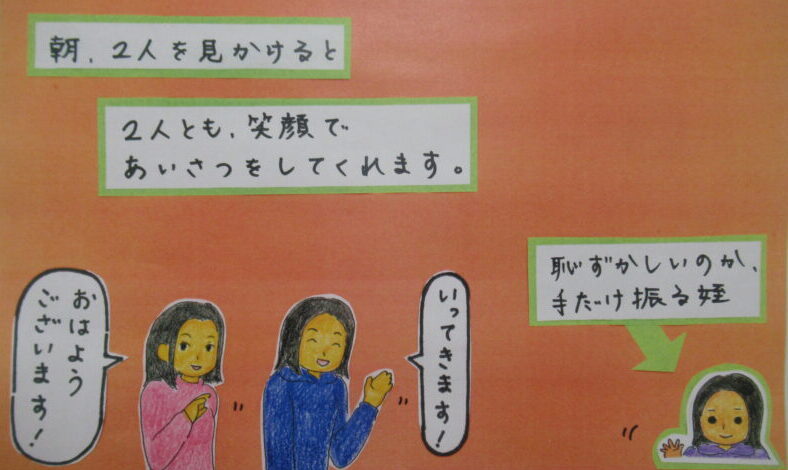 朝、2人を見かけると
2人とも、笑顔で
あいさつをしてくれます。
恥ずかしいのか、
手だけ振る姪
おはよう
ございます!
いってきます!